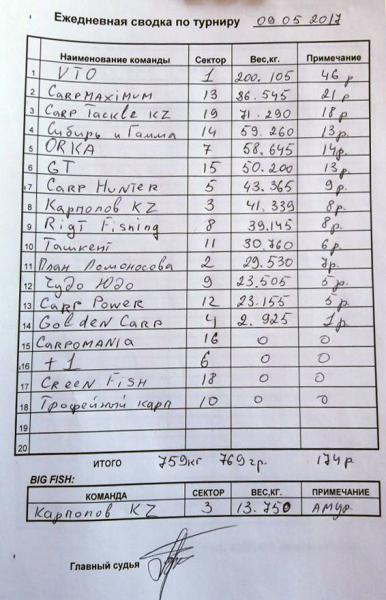 Ежедневная сводка по турниру 09 05 2017
Наименование команды Сектор Вес,кг. Примечание
1 VTO 1 200.105 46 р
2 CARPMAXIMUM 13 86.545 21 р
3 CARP TACKLE KZ 19 71.290 18 р
4 Сибирь и Гамма 14 59.260 13 р.
5 ORKA 7 58.645 14 р.
6 GT 15 50.200 13 р.
7 CARP HUNTER 5 43.365 9 р.
8 Карполов KZ 3 41.339 8 р.
9 Rigt Fishing 8 39.145 8 р.
10 Ташкент 11 30.760 6 р.
11 План Ломоносова 2 29.530 7 р.
12 Чудо Юдо 9 23,505 5 р.
13 CARP POWER 12 23.155 5 р.
14 Golden Carp 4 2.925 1 р.
15 CARPOMANIA 16 0 0
16 +1 6 0 0
17 GREEN FISH 18 0 0
18 Трофейный карп 10 0 0
19
20
ИТОГО 759кг 769гр. 174р.
BIG FISH:
КОМАНДА СЕКТОР ВЕС,КГ. ПРИМЕЧАНИЕ
Карполов KZ 3 13.750 Амур.
Главный судья